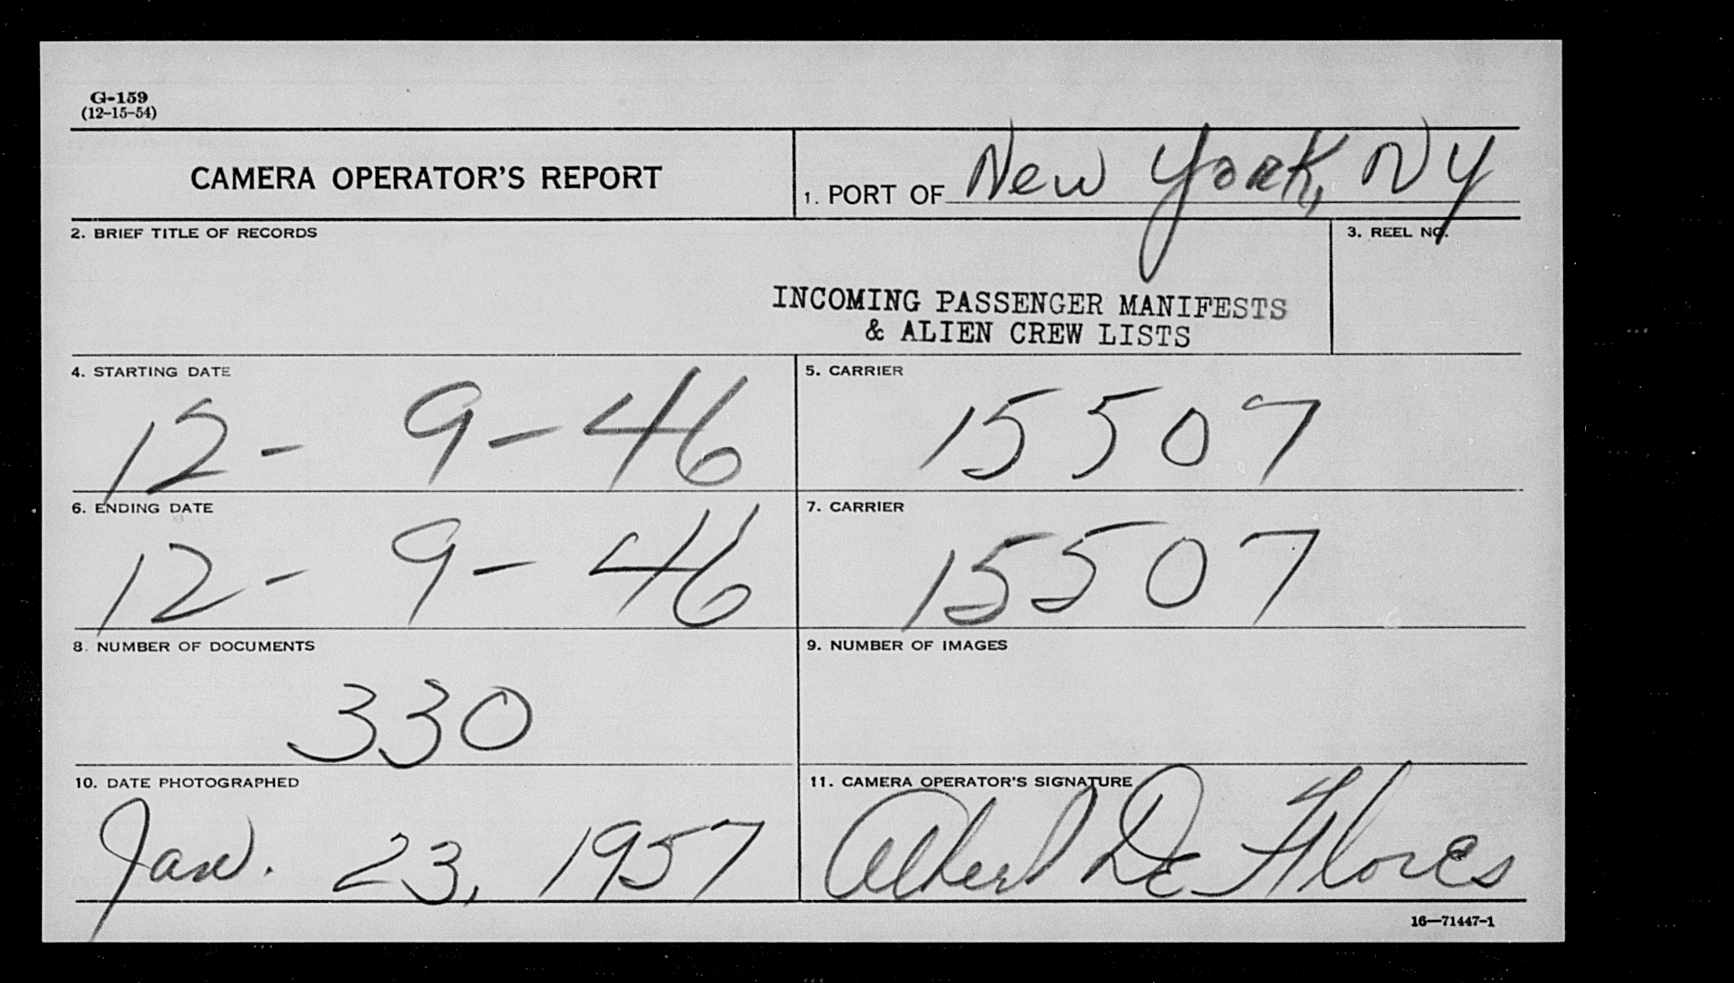 G-159
(12-15-54)
CAMERA OPERATOR'S REPORT
1. PORT OF New York, NY
2. BRIEF TITLE OF RECORDS
3. REEL NO.
INCOMING PASSENGER MANIFESTS
& ALIEN CREW LISTS
4. STARTING DATE
12- 9-46
5. CARRIER
15507
6. ENDING DATE
12- 9-46
7. CARRIER
15507
8. NUMBER OF DOCUMENTS
330
9. NUMBER OF IMAGES
10. DATE PHOTOGRAPHED
Jan. 23, 1957
11. CAMERA OPERATOR'S SIGNATURE
Albert De Flores
16—71447-1